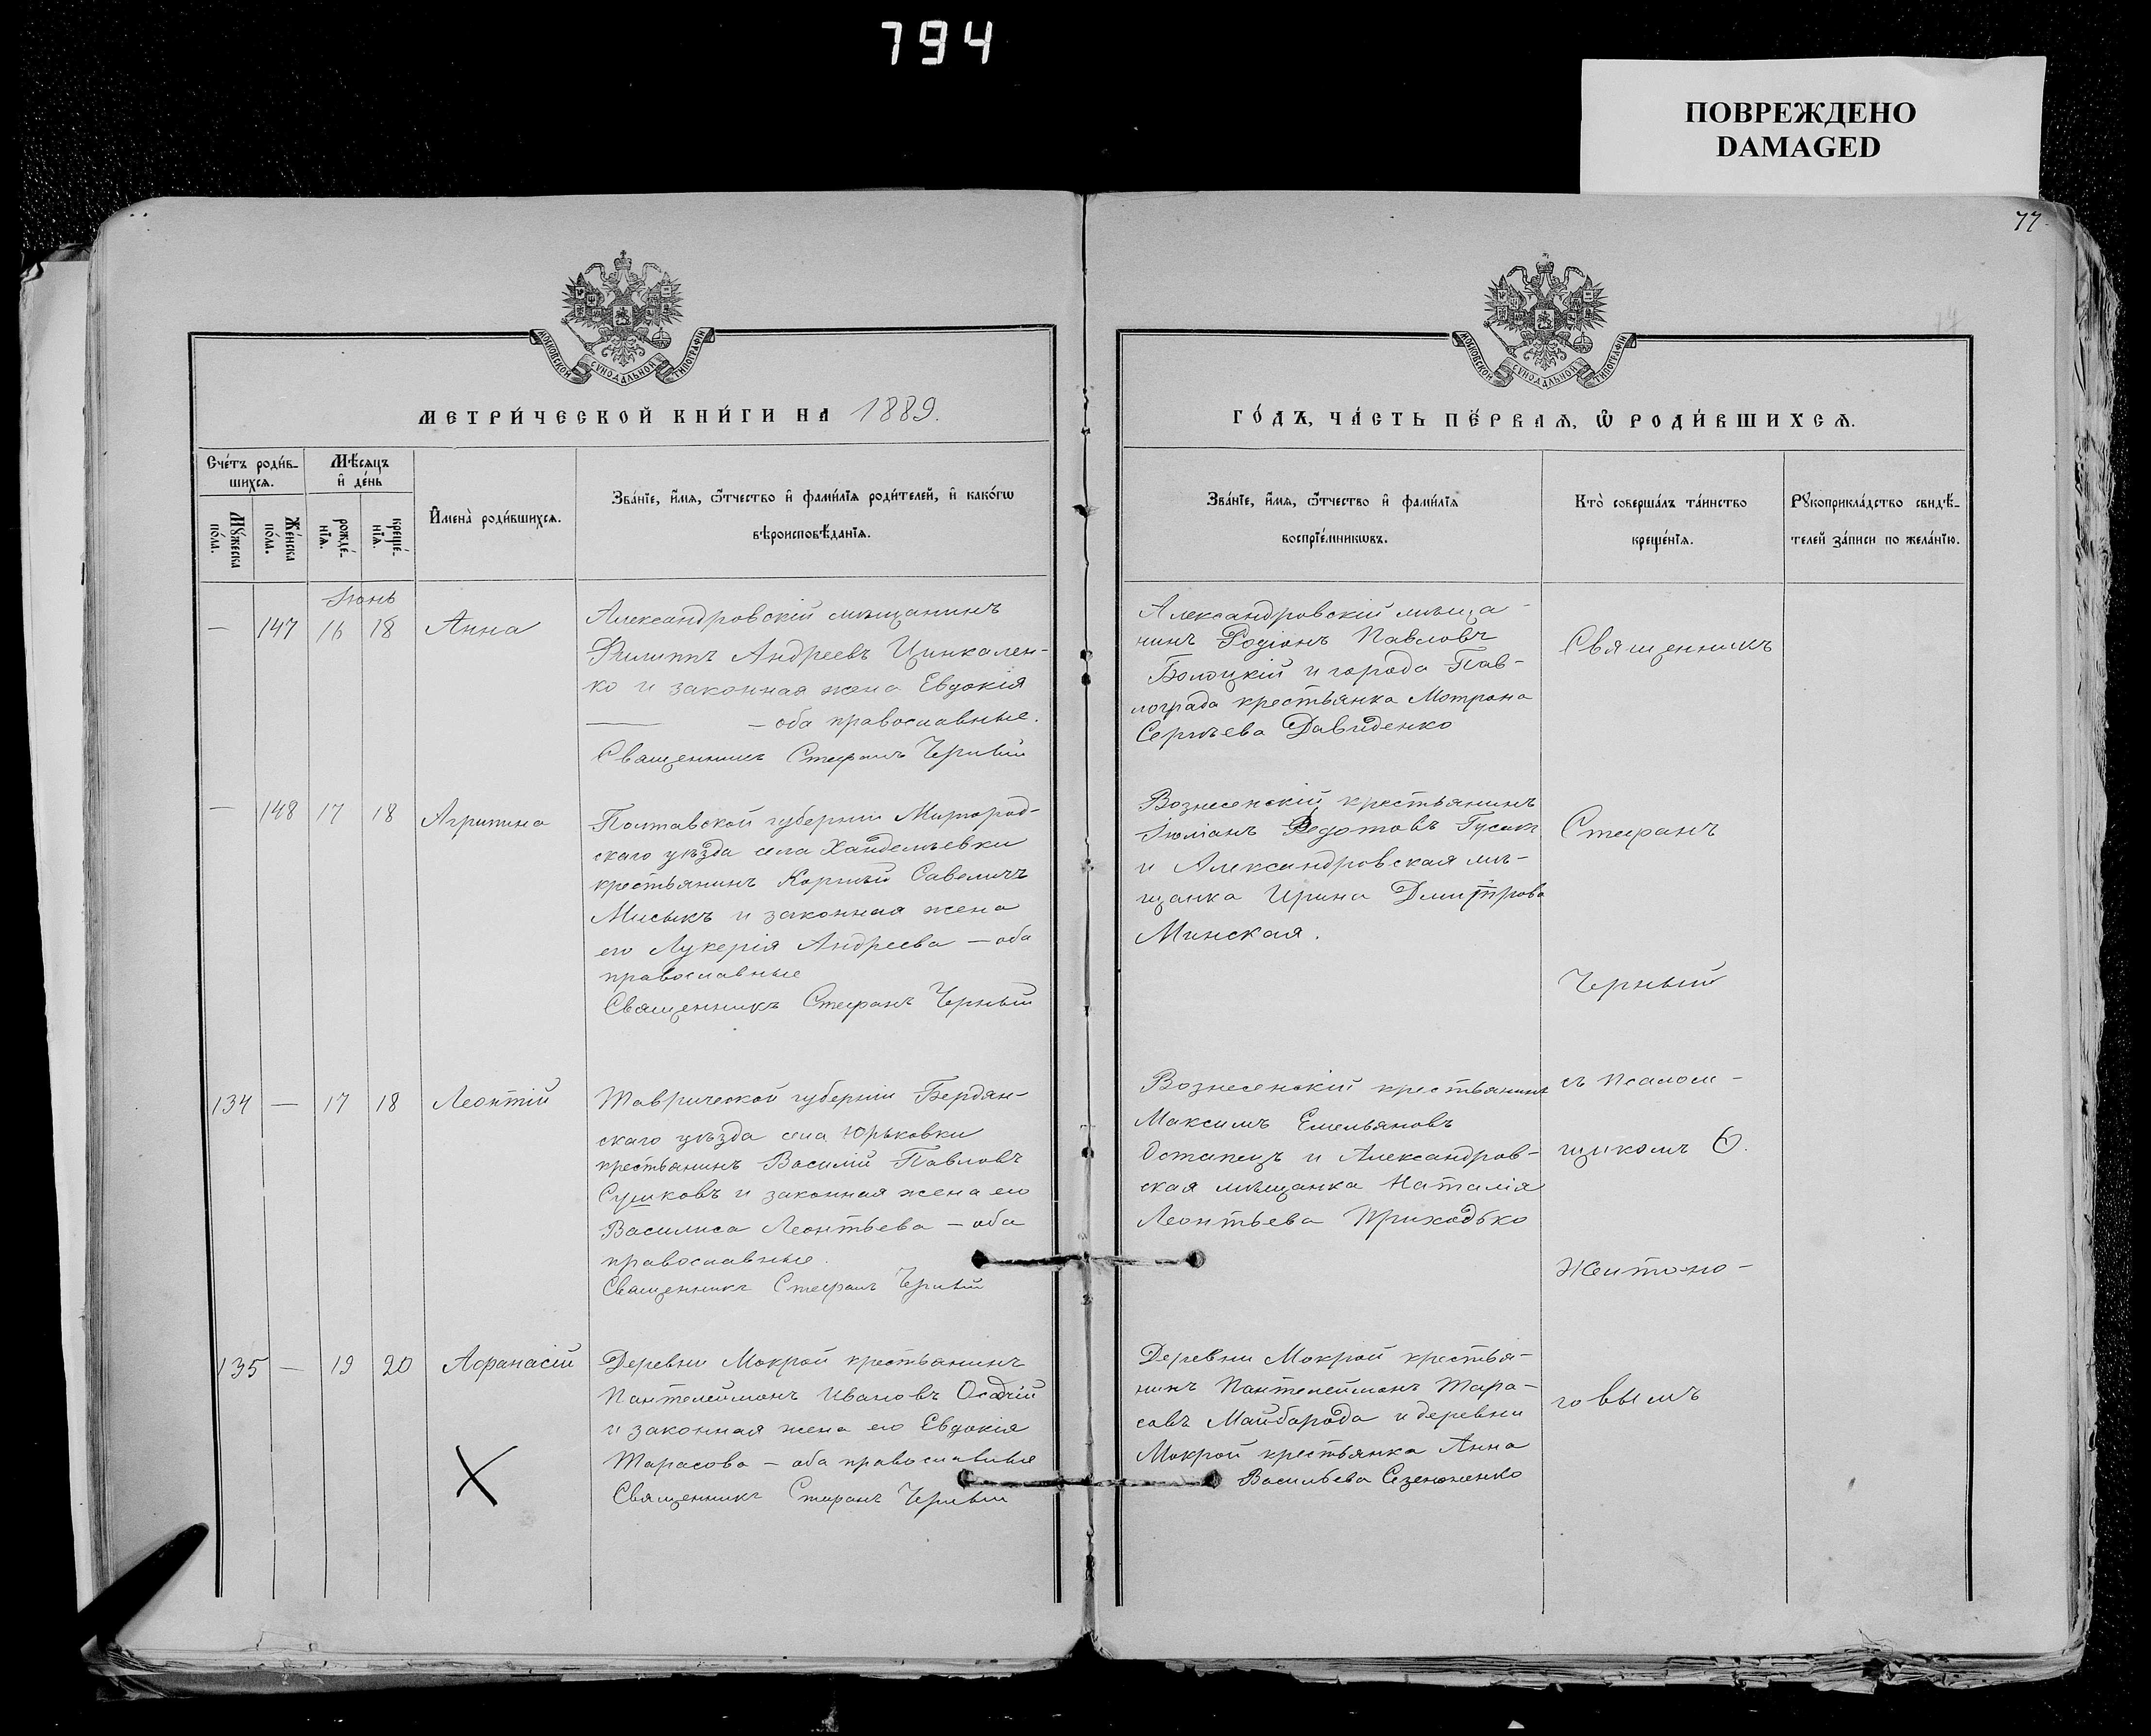 794
ПОВРЕЖДЕНО
DAMAGED
77
МОСКОВСКОЙ СѴНОДАЛЬНОЙ ТИПОГРАФІИ
МОСКОВСКОЙ СѴНОДАЛЬНОЙ ТИПОГРАФІИ
МЕТРИ́ЧЕСКОЙ КНИ́ГИ НА 1889.
ГО́ДЪ, ЧА́СТЬ ПЕ́РВАѦ, Ѿ РОДИ́ВШИХСѦ.
Сче́тъ роди́в-
шихсѧ.
Мѣ́сѧцъ
и҆ де́нь
Мꙋ́жеска
по́ла.
Же́нска
по́ла.
рожде́-
нїѧ.
креще́-
нїѧ.
И҆мена̀ роди́вшихсѧ.
Зва́нїе, и҆́мѧ, ѻ҆́тчество и҆ фами́лїѧ роди́телей, и҆ како́гѡ
вѣроисповѣ́данїѧ.
Зва́нїе, и҆́мѧ, ѻ҆́тчество и҆ фами́лїѧ
воспрїе́мникѡвъ.
Кто̀ соверша́лъ та́инство
креще́нїѧ.
Рꙋкоприкла́дство свидѣ́-
телей за́писи по жела́нїю.
Іюнь
— 147 16 18 Анна
Александровскій мѣщанинъ
Филиппъ Андреевъ Цинкален-
ко и законная жена Евдокія
— оба православные.
Священникъ Стефанъ Черный
Александровскій мѣща-
нинъ Родіонъ Павловъ
Болоцкій и города Пав-
лограда крестьянка Мотрона
Сергѣева Давиденко
Священникъ
— 148 17 18 Агрипина
Полтавской губерніи Миргород-
скаго уѣзда села
крестьянинъ Корнѣй Савеличъ
Мисыкъ и законная жена
его Лукерія Андреева — оба
православные
Священникъ Стефанъ Черный
Вознесенскій крестьянинъ
Іюліанъ Федотовъ Гусакъ
и Александровская мѣ-
щанка Ирина Дмитрова
Минская.
Стефанъ
Черный
134 — 17 18 Леонтій
Таврической губерніи Бердян-
скаго уѣзда села Юрьковки
крестьянинъ Василій Павловъ
Сушковъ и законная жена его
Василиса Леонтьева — оба
православные.
Священникъ Стефанъ Черный
Вознесенскій крестьянинъ
Максимъ Емельяновъ
Остапецъ и Александров-
ская мѣщанка Наталія
Леонтьева Приходько
съ псалом-
щикомъ Ѳ.
Желтоно-
135 — 19 20 Афанасій
Деревни Мокрой крестьянинъ
Пантелеймонъ Ивановъ Осадчій
и законная жена его Евдокія
Тарасова — оба православные
Священникъ Стефанъ Черный
Деревни Мокрой крестья-
нинъ Пантелеймонъ Тара-
совъ Майборода и деревни
Мокрой крестьянка Анна
Васильева
говымъ